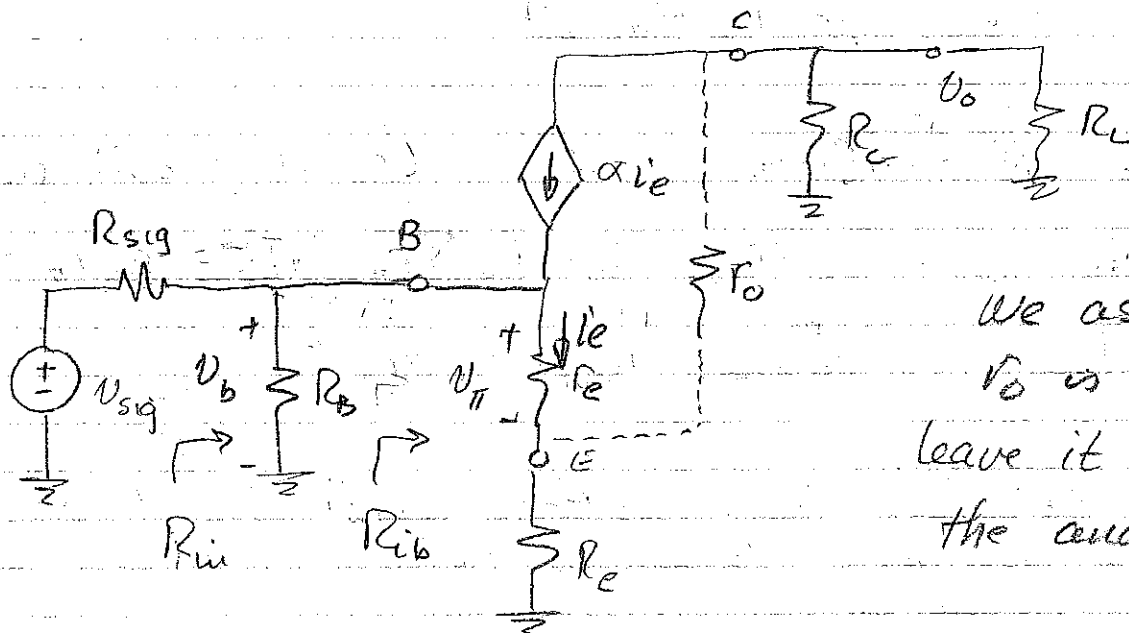 C
υo
Rc
RL
αie
Rsig
B
ro
ie
+
+
+
-
υsig
υb
RB
υπ
re
-
-
E
Rin
Rib
Re
we as
ro is
leave it
the